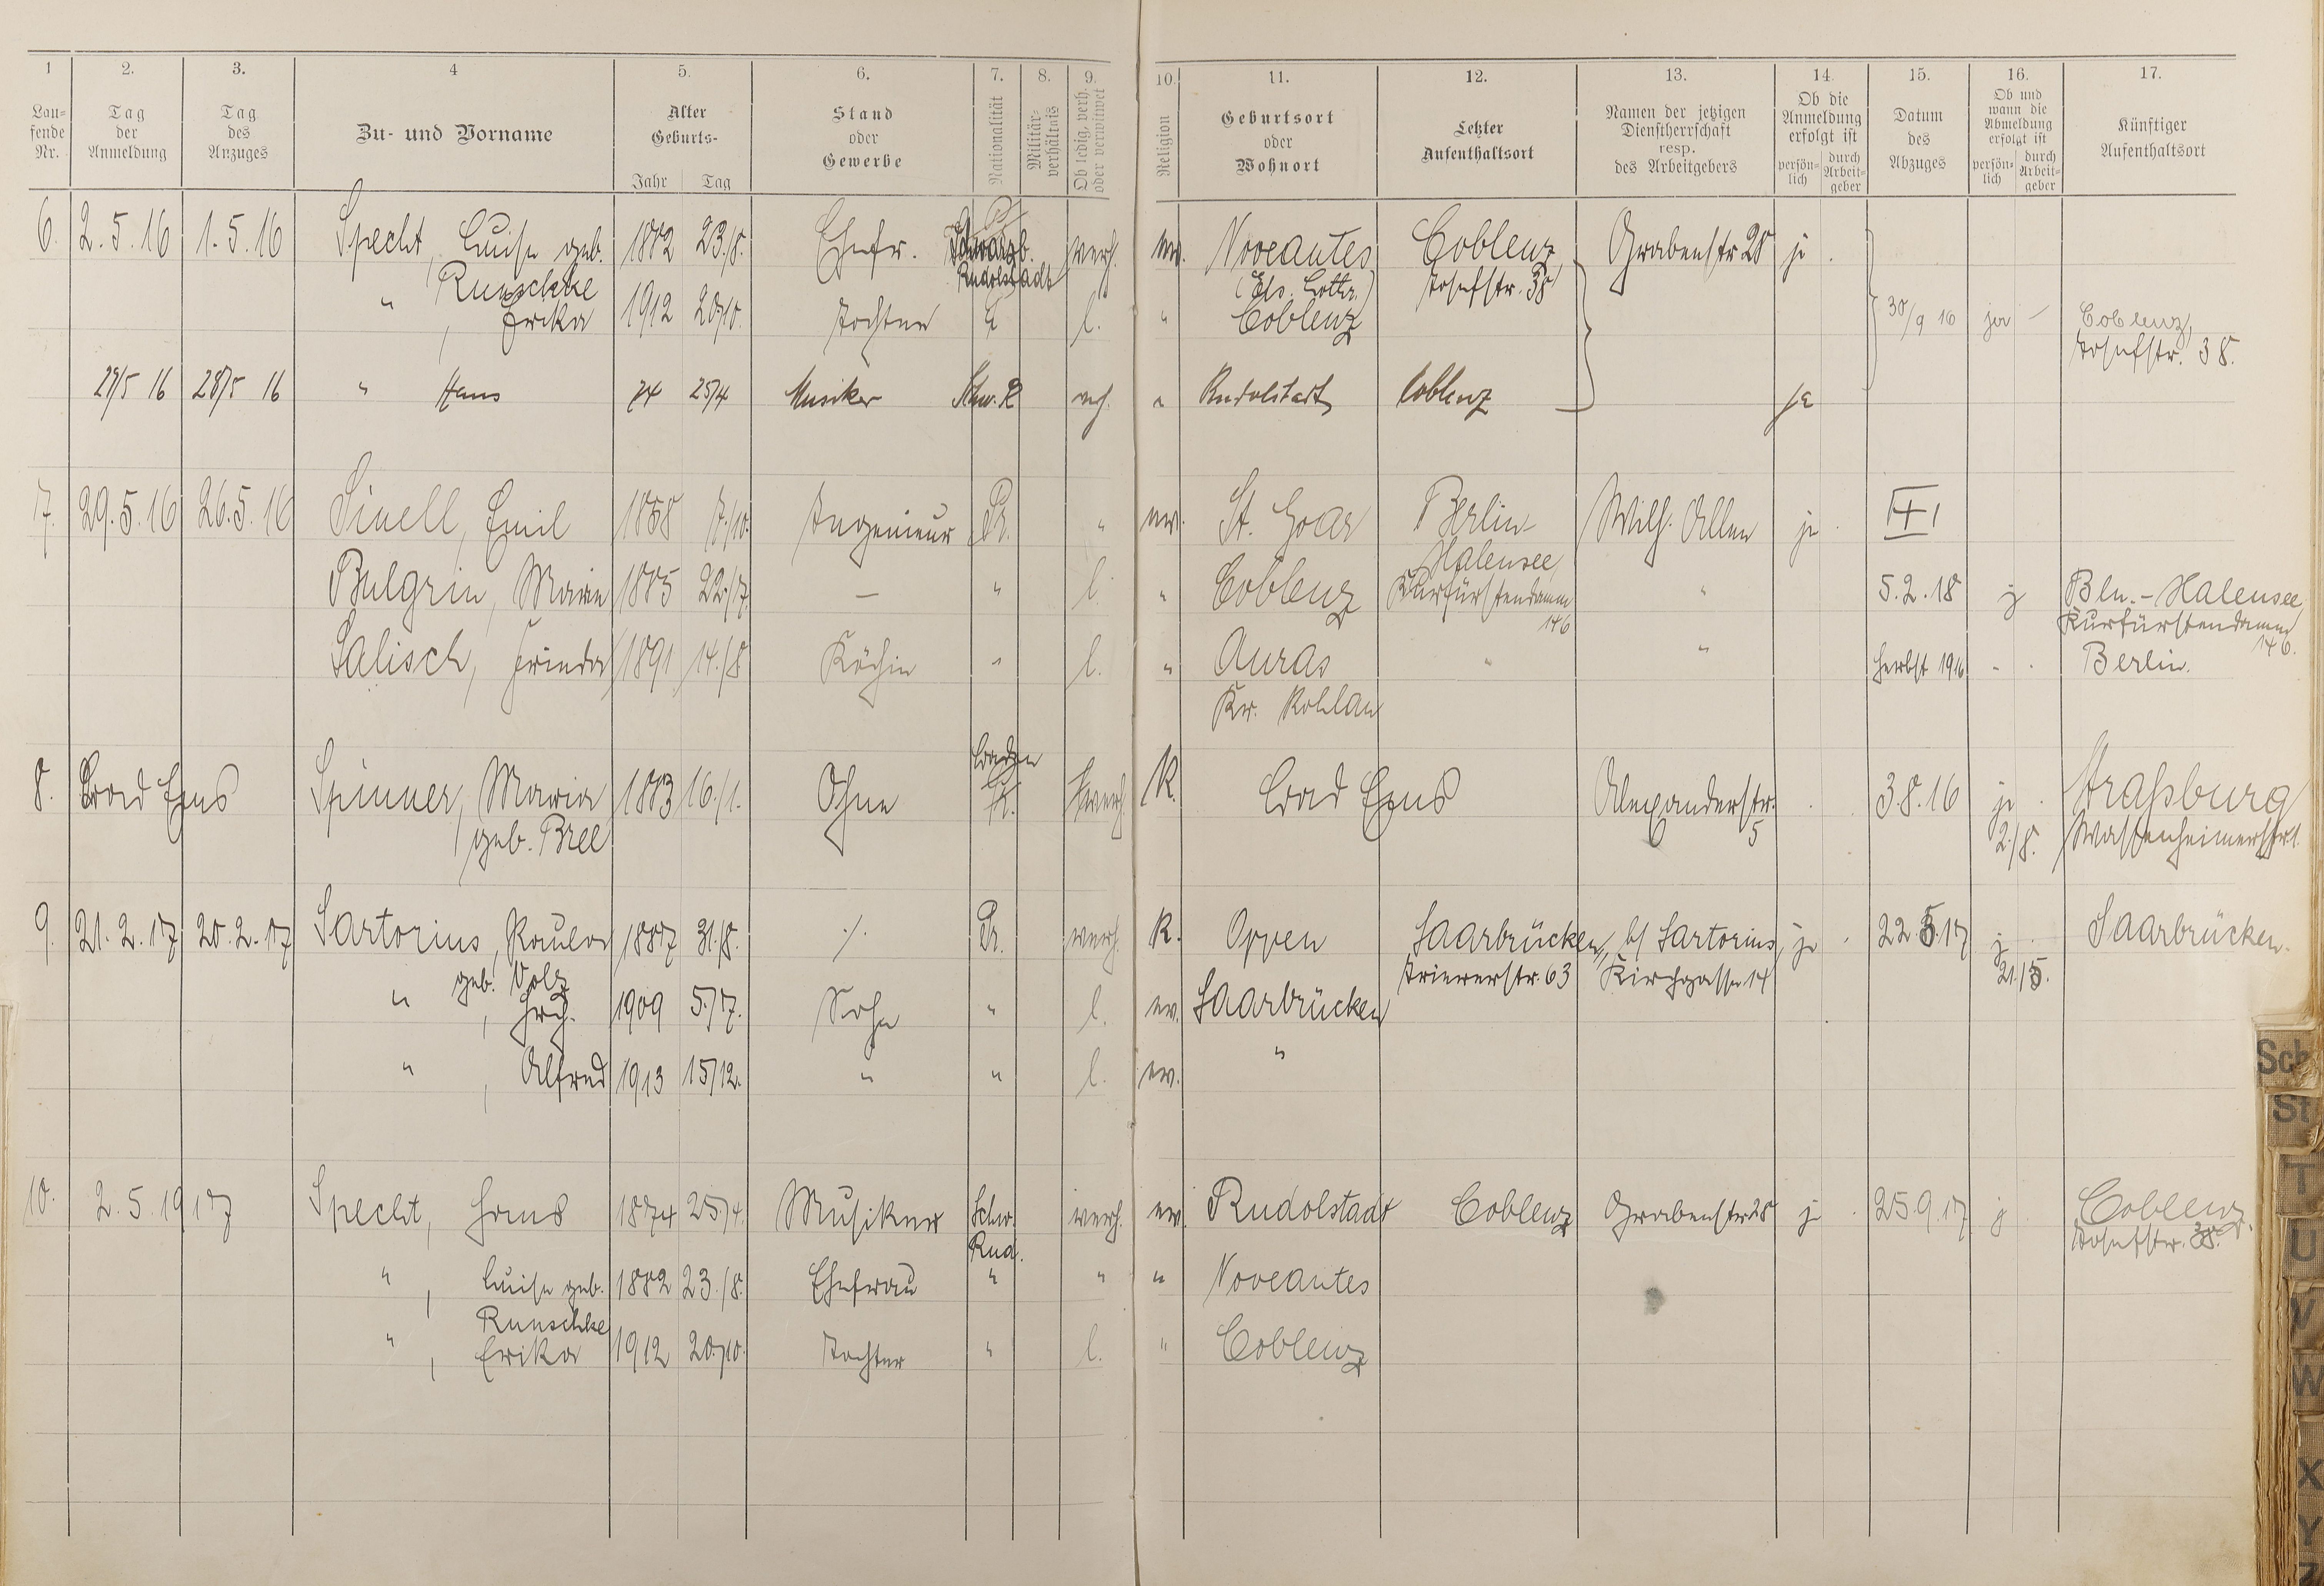 1 2. 3. 4 5. 6. 7. 8. 9. 10. 11. 12. 13. 14. 15. 16. 17.
Lau-
fende
Nr.
Tag
der
Anmeldung
Tag
des
Anzuges
Zu- und Vorname
Alter
Geburts-
Jahr Tag
Stand
oder
Gewerbe
Nationalität
Militär-
verhältnis
Ob ledig, verh.
oder verwitwet
Religion
Geburtsort
oder
Wohnort
Letzter
Aufenthaltsort
Namen der jetzigen
Dienstherrschaft
resp.
des Arbeitgebers
Ob die
Anmeldung
erfolgt ist
persön-
lich
durch
Arbeit-
geber
Datum
des
Abzuges
Ob und
wann die
Abmeldung
erfolgt ist
persön-
lich
durch
Arbeit-
geber
Künftiger
Aufenthaltsort
6. 2.5.16 1.5.16 Specht, Luise geb. 1882 23./8. Ehefr. Schwarzb. verh. ev. Noveantes Coblenz Grabenstr 28 ja
Runschke Rudolstadt (Els. Lothr.) Josefstr. 38
" , Erika 1912 20/10. Tochter " l. " Coblenz 30/9 16 ja – Coblenz,
Josefstr. 38.
27/5 16 28/5 16 " Hans 74 25/4 Musiker Schw. R vh. " Rudolstadt Coblenz ja
7. 29.5.16 26.5.16 Sinell, Emil 1868 7./10. Ingenieur Pr. " ev. St. Goar Berlin- Wilh. Allee ja
Halensee
Bulgrin, Marie 1885 22./7. — " l. " Coblenz Kurfürstendamm " 5.2.18 j Bln.-Halensee
146 Kurfürstendamm
146.
Salisch, Frieda 1891 14./8 Köchin " l. " Auras " " Herbst 1916 " . Berlin.
Kr.
8. Bad Ems Spinner, Maria 1883 16./1. Ohne verh. K. Bad Ems Alexanderstr. 3.8.16 ja Straßburg
geb. Bree 5 2./8.
9. 21.2.17 20.2.17 Sartorius, Paula 1887 31./8. ./. Pr. verh. K. Oppen Saarbrücken, b/ Sartorius, ja 22.5.17 j Saarbrücken.
geb. Volz Triererstr. 63 Kirchgasse 14 21./5.
" , Frch. 1909 5./7. Sohn " l. ev. Saarbrücken
" , Alfred 1913 15/12. " " l. ev. "
10. 2.5.1917 Specht, Hans 1874 25./4. Musiker Schw. verh. ev. Rudolstadt Coblenz Grabenstr 28 ja 25.9.17 j Coblenz
Rud. Josefstr. 38.
" , Luise geb. 1882 23./8. Ehefrau " " " Noveantes
Runschke
" , Erika 1912 20./10. Tochter " l. " Coblenz
Sch
St
T
U
V
W
X
Y
Z